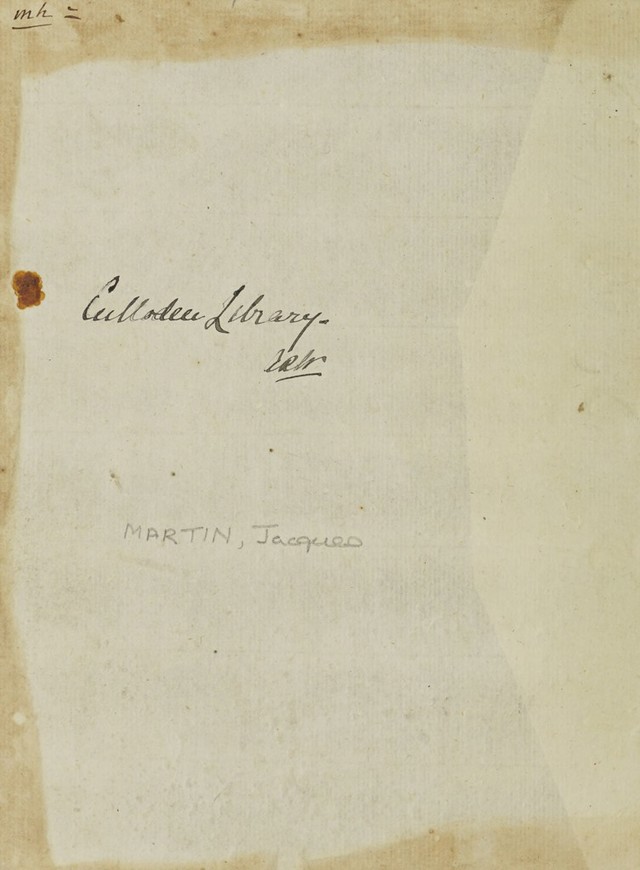 mh =
Culloden Library-
MARTIN, Jacques